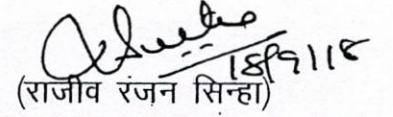 18/9/18
(राजीव रंजन सिन्हा)